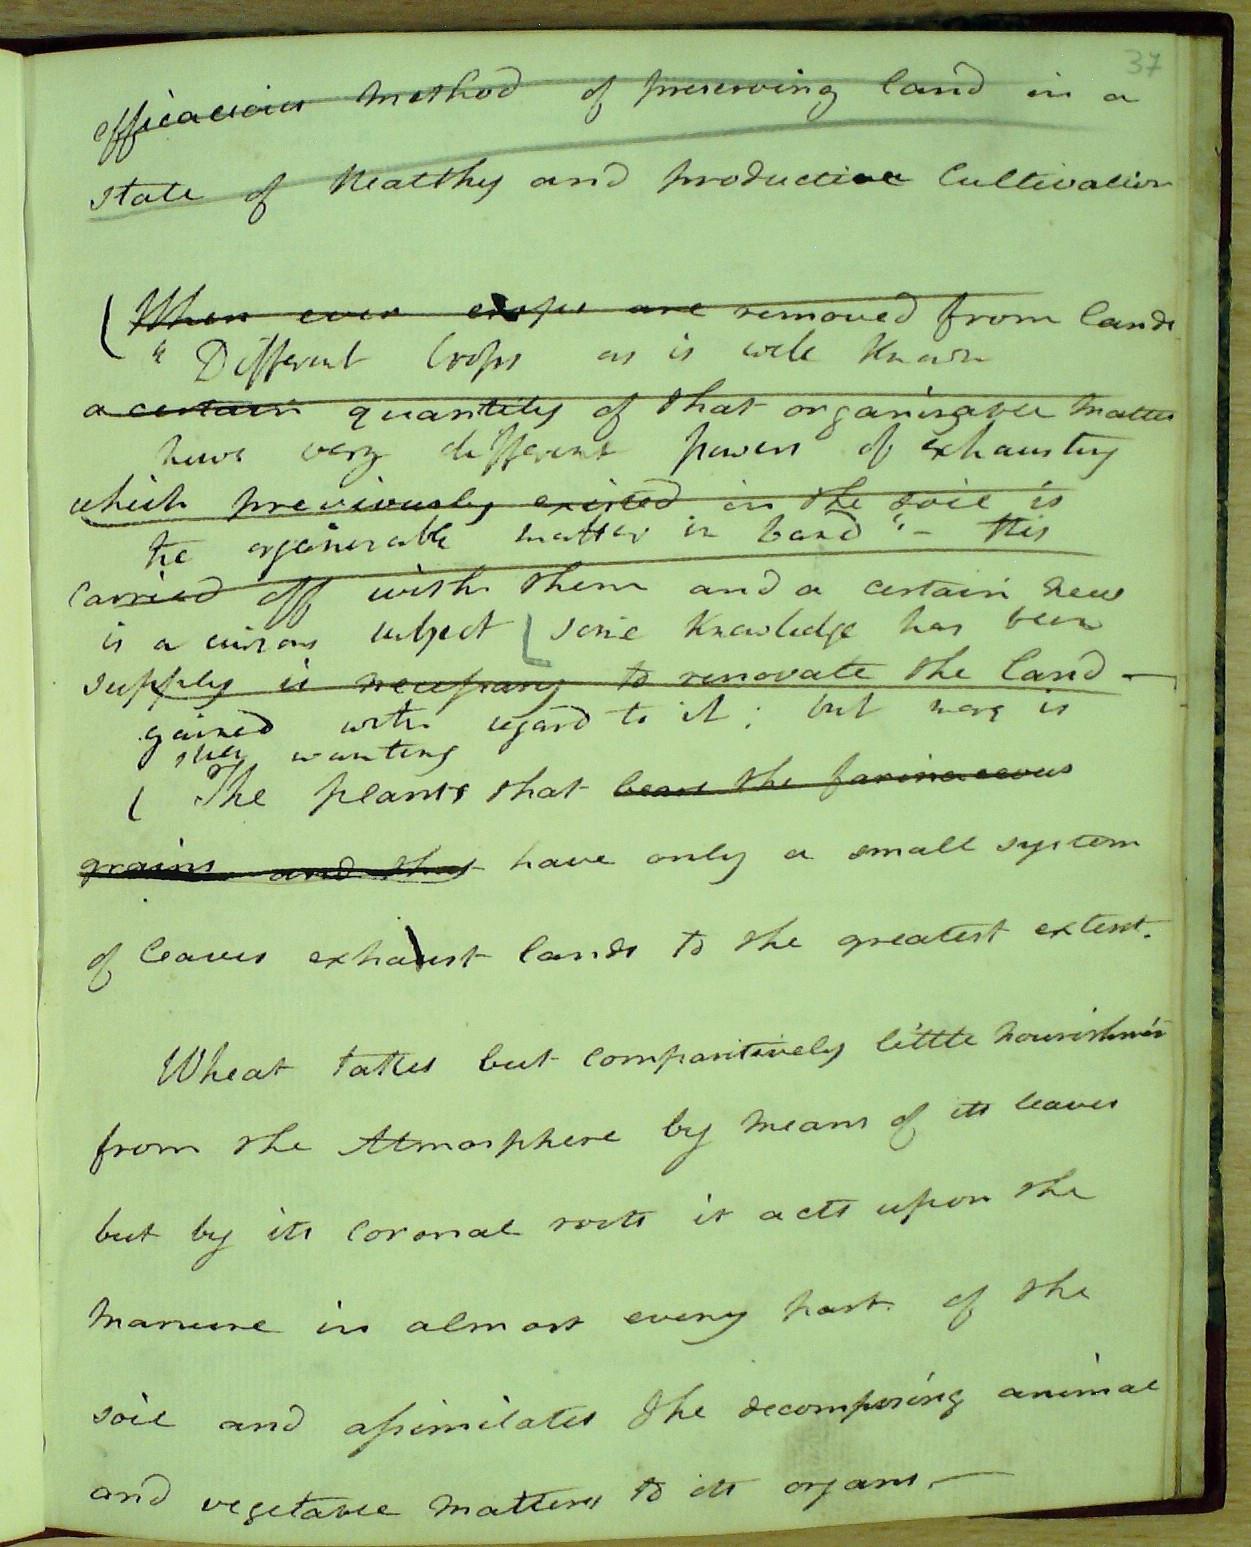 37
efficacious method of preserving land in a
state of healthy and productive Cultivation
When ever crops are removed from lands
" Different Crops as is well Known
a certain quantity of that organisable matter
have very different powers of exhausting
which previously existed in the soil is
the organisable matter in land " - this
carried off with them and a certain new
is a curious subject some Knowledge has been
supply is necessary to renovate the land —
gained with regard to it; but more is
still wanting
The plants that bear the farinaceous
grains and that have only a small system
of leaves exhaust lands to the greatest extent.
Wheat takes but comparitively little nourishmen
from the Atmosphere by means of its leaves
but by its coronal roots it acts upon the
manure in almost every part. of the
soil and assimilates the decomposing animal
and vegetable matters to its organs. —